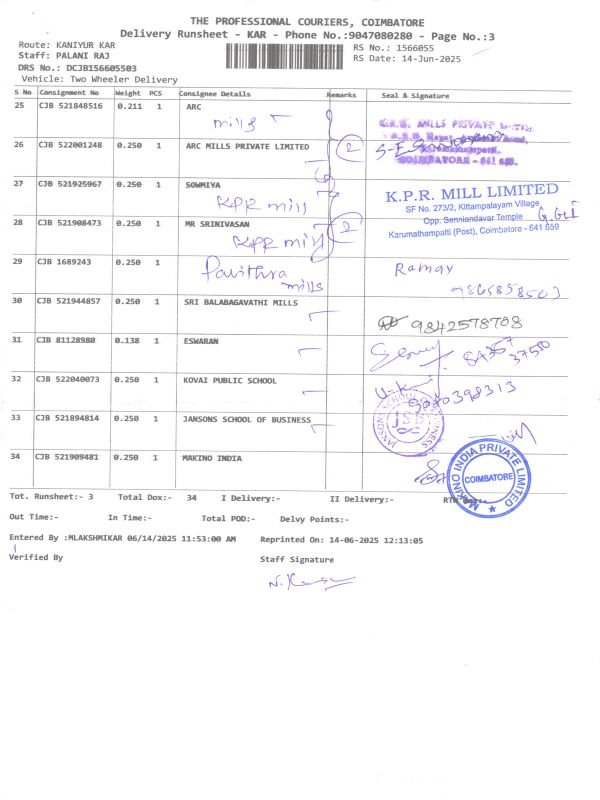 THE PROFESSIONAL COURIERS, COIMBATORE
Delivery Runsheet - KAR - Phone No.:9047080280 - Page No.:3
Route: KANIYUR KAR
Staff: PALANI RAJ
RS No.: 1566055
RS Date: 14-Jun-2025
DRS No.: DCJB156605503
Vehicle: Two Wheeler Delivery
S.No Consignment No Weight PCS Consignee Details Remarks Seal & Signature
25 CJB 521848516 0.211 1 ARC
mills
MILLS PRIVATE LIMITED
26 CJB 522001248 0.250 1 ARC MILLS PRIVATE LIMITED 2
COIMBATORE - 641
27 CJB 521925967 0.250 1 SOWMIYA
KPR mill
K.P.R. MILL LIMITED
SF No. 273/2, Kittampalayam Village
Opp. Senniandavar Temple
Karumathampatti (Post), Coimbatore - 641 659
28 CJB 521908473 0.250 1 MR SRINIVASAN 2
KPR mill
29 CJB 1689243 0.250 1 Pavithra
mills
Ramay
30 CJB 521944857 0.250 1 SRI BALABAGAVATHI MILLS
9842578708
31 CJB 81128980 0.138 1 ESWARAN
32 CJB 522040073 0.250 1 KOVAI PUBLIC SCHOOL
33 CJB 521894814 0.250 1 JANSONS SCHOOL OF BUSINESS
34 CJB 521909481 0.250 1 MAKINO INDIA
MAKINO INDIA PRIVATE LIMITED
COIMBATORE
Tot. Runsheet:- 3 Total Dox:- 34 I Delivery:- II Delivery:-
Out Time:- In Time:- Total POD:- Delvy Points:-
Entered By :MLAKSHMIKAR 06/14/2025 11:53:00 AM Reprinted On: 14-06-2025 12:13:05
Verified By Staff Signature